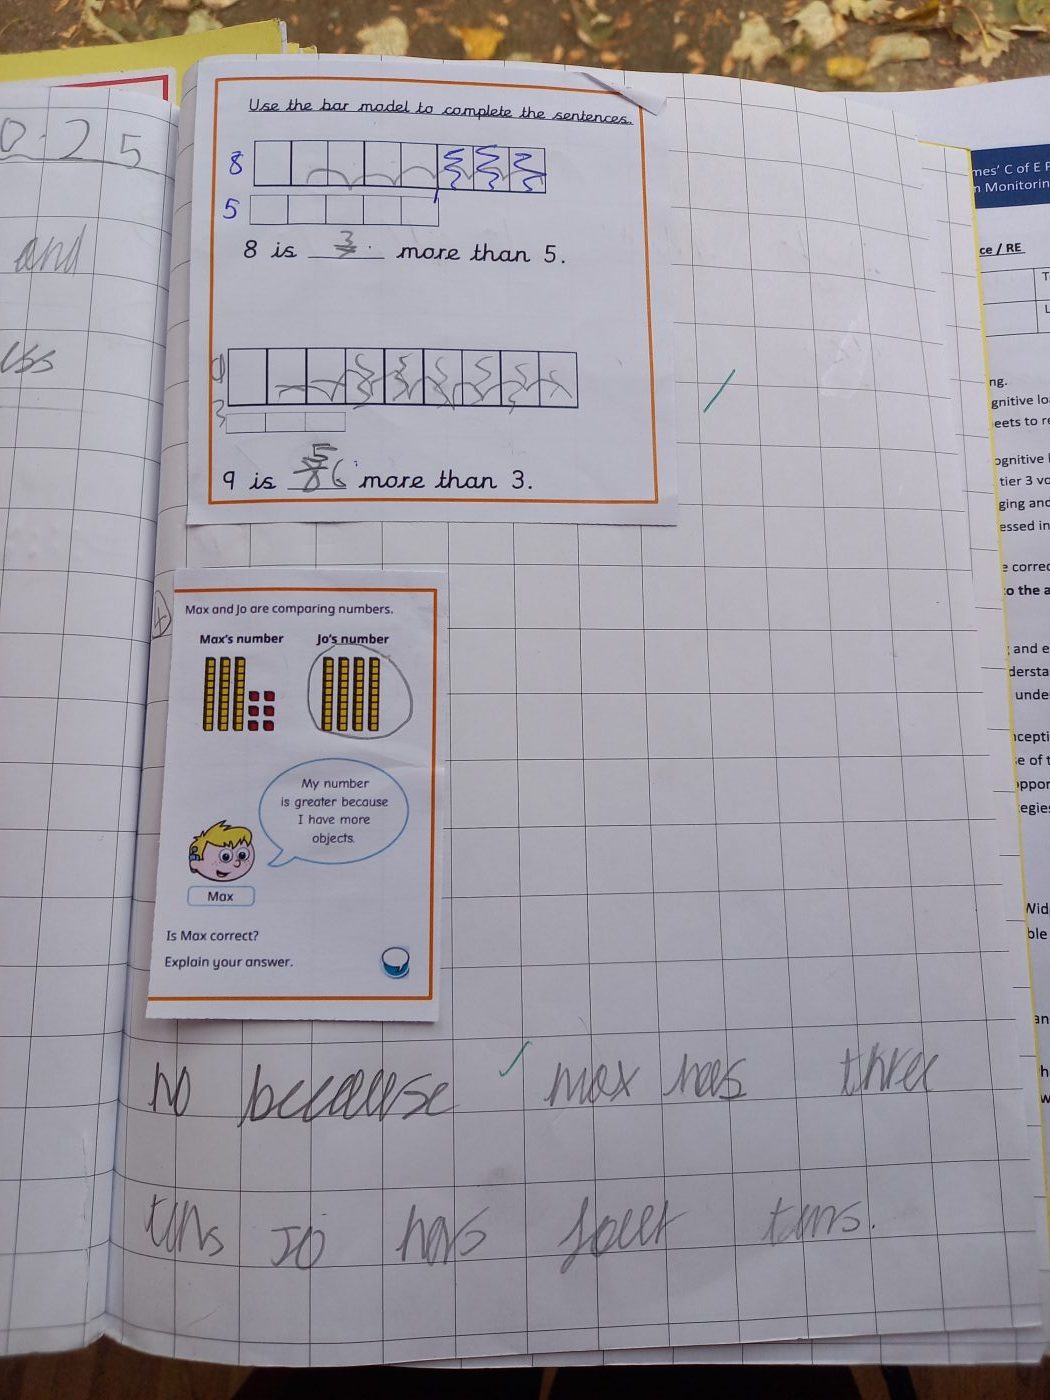 0.25
and
ess
Use the bar model to complete the sentences.
8
5
8 is 3 more than 5.
9
3
5
9 is 8 6 more than 3.
4
Max and Jo are comparing numbers.
Max's number Jo's number
My number
is greater because
I have more
objects.
Max
Is Max correct?
Explain your answer.
no because max has three
tens Jo has four tens.
mes' C of E P
n Monitorin
ce / RE
T
L
ng.
gnitive lo
eets to re
ognitive l
tier 3 vo
ging and
essed in
e correc
to the a
and e
dersta
unde
ncepti
se of t
oppor
egies
Wid
ble
an
h
w